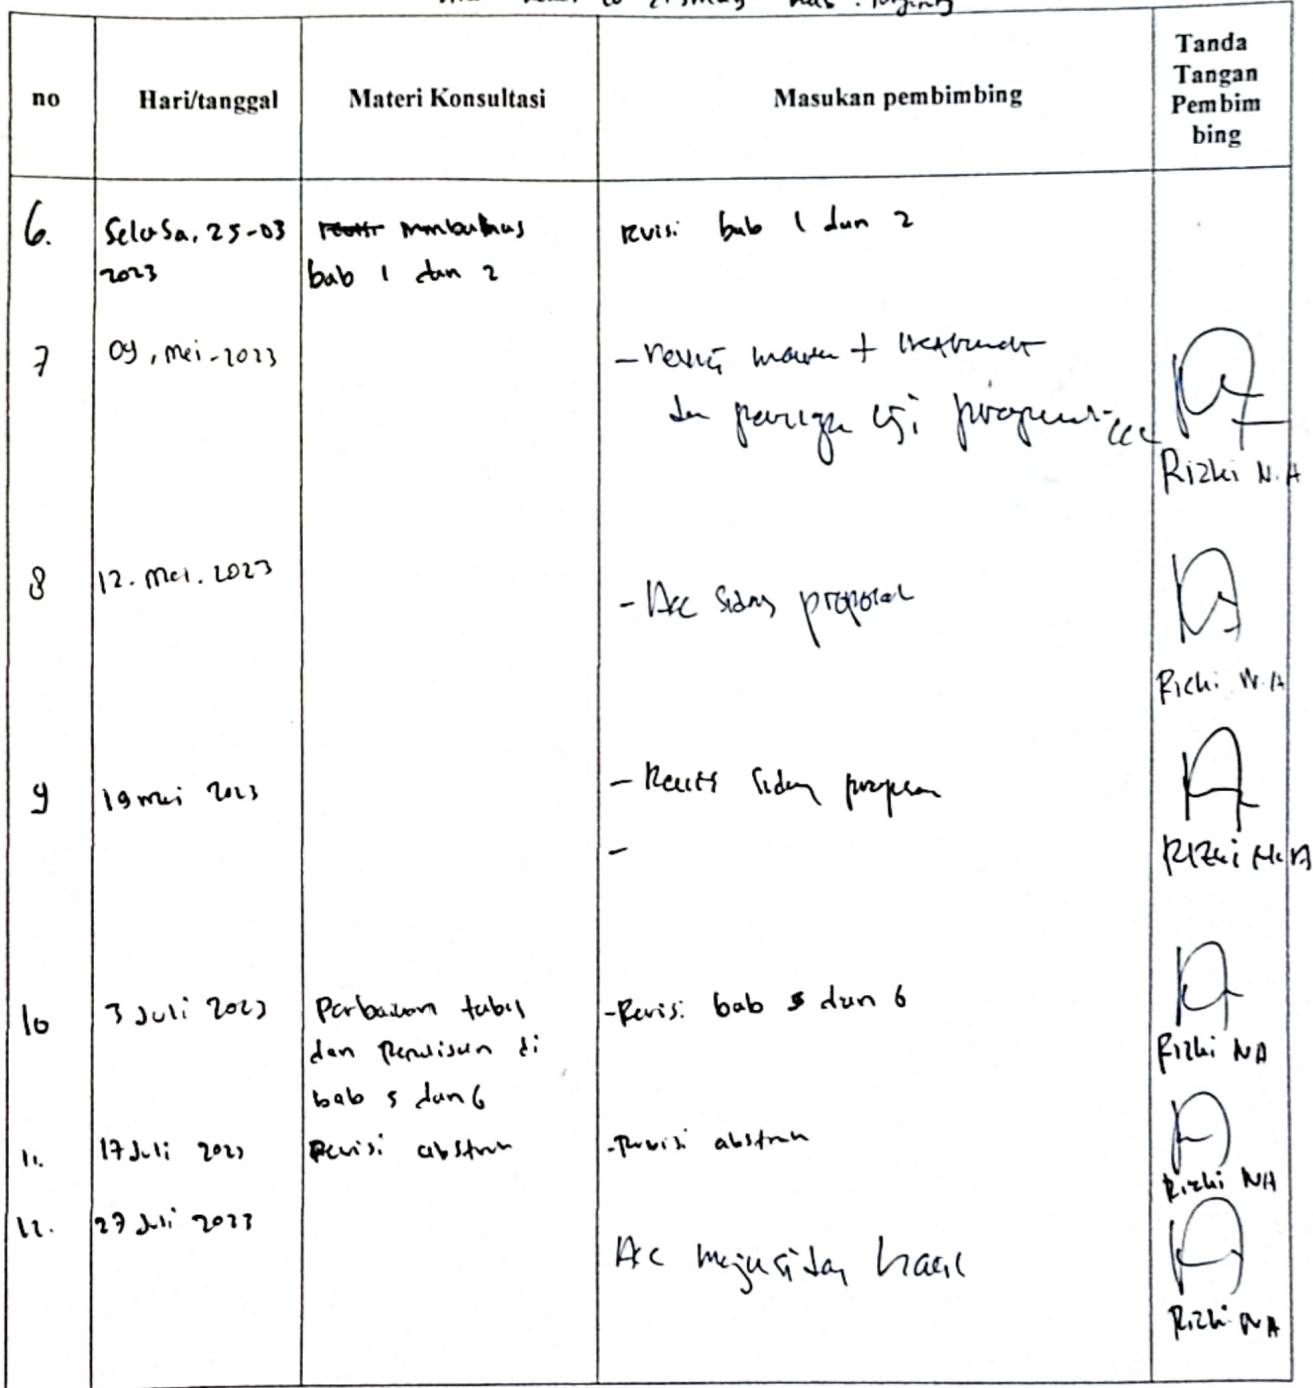 no
Hari/tanggal
Materi Konsultasi
Masukan pembimbing
Tanda
Tangan
Pembim
bing
6.
Selasa, 25-03
2023
membahas
bab 1 dan 2
revisi bab 1 dan 2
7
09, mei-2023
- revisi
Rizki N.A
8
12. Mei. 2023
- Acc sidang proposal
Rizki N.A
9
19 mei 2023
- Revisi sidang proposal
-
Rizki N.A
10
3 Juli 2023
Perbaikan tabel
dan Penulisan di
bab 5 dan 6
- Revisi bab 5 dan 6
Rizki NA
11.
17 Juli 2023
Revisi abstrak
- Revisi abstrak
Rizki NA
12.
27 Juli 2023
Acc maju sidang hasil
Rizki NA